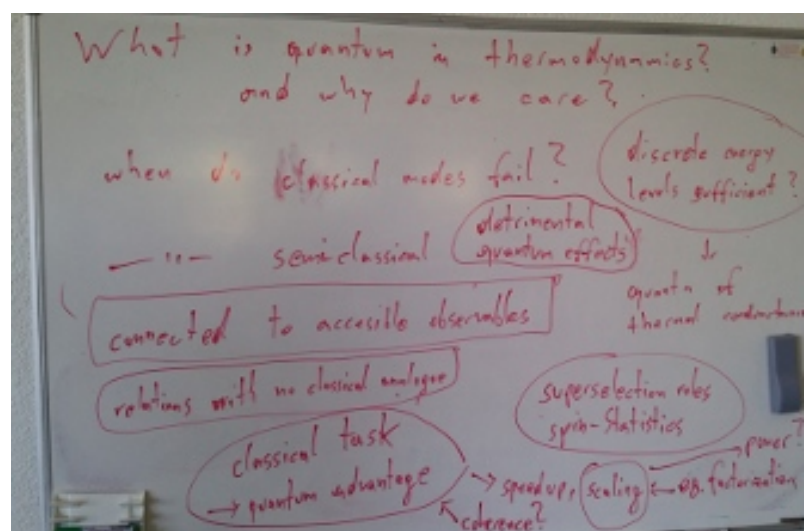 What is quantum in thermodynamics?
and why do we care?
when do classical modes fail?
discrete energy
levels sufficient?
— " — semiclassical
detrimental
quantum effects
quanta of
thermal
connected to accesible observables
relations with no classical analogue
superselection rules
spin-Statistics
classical task
→ quantum advantage
→ speedup, scaling
power?
eg. factorization
coherence?